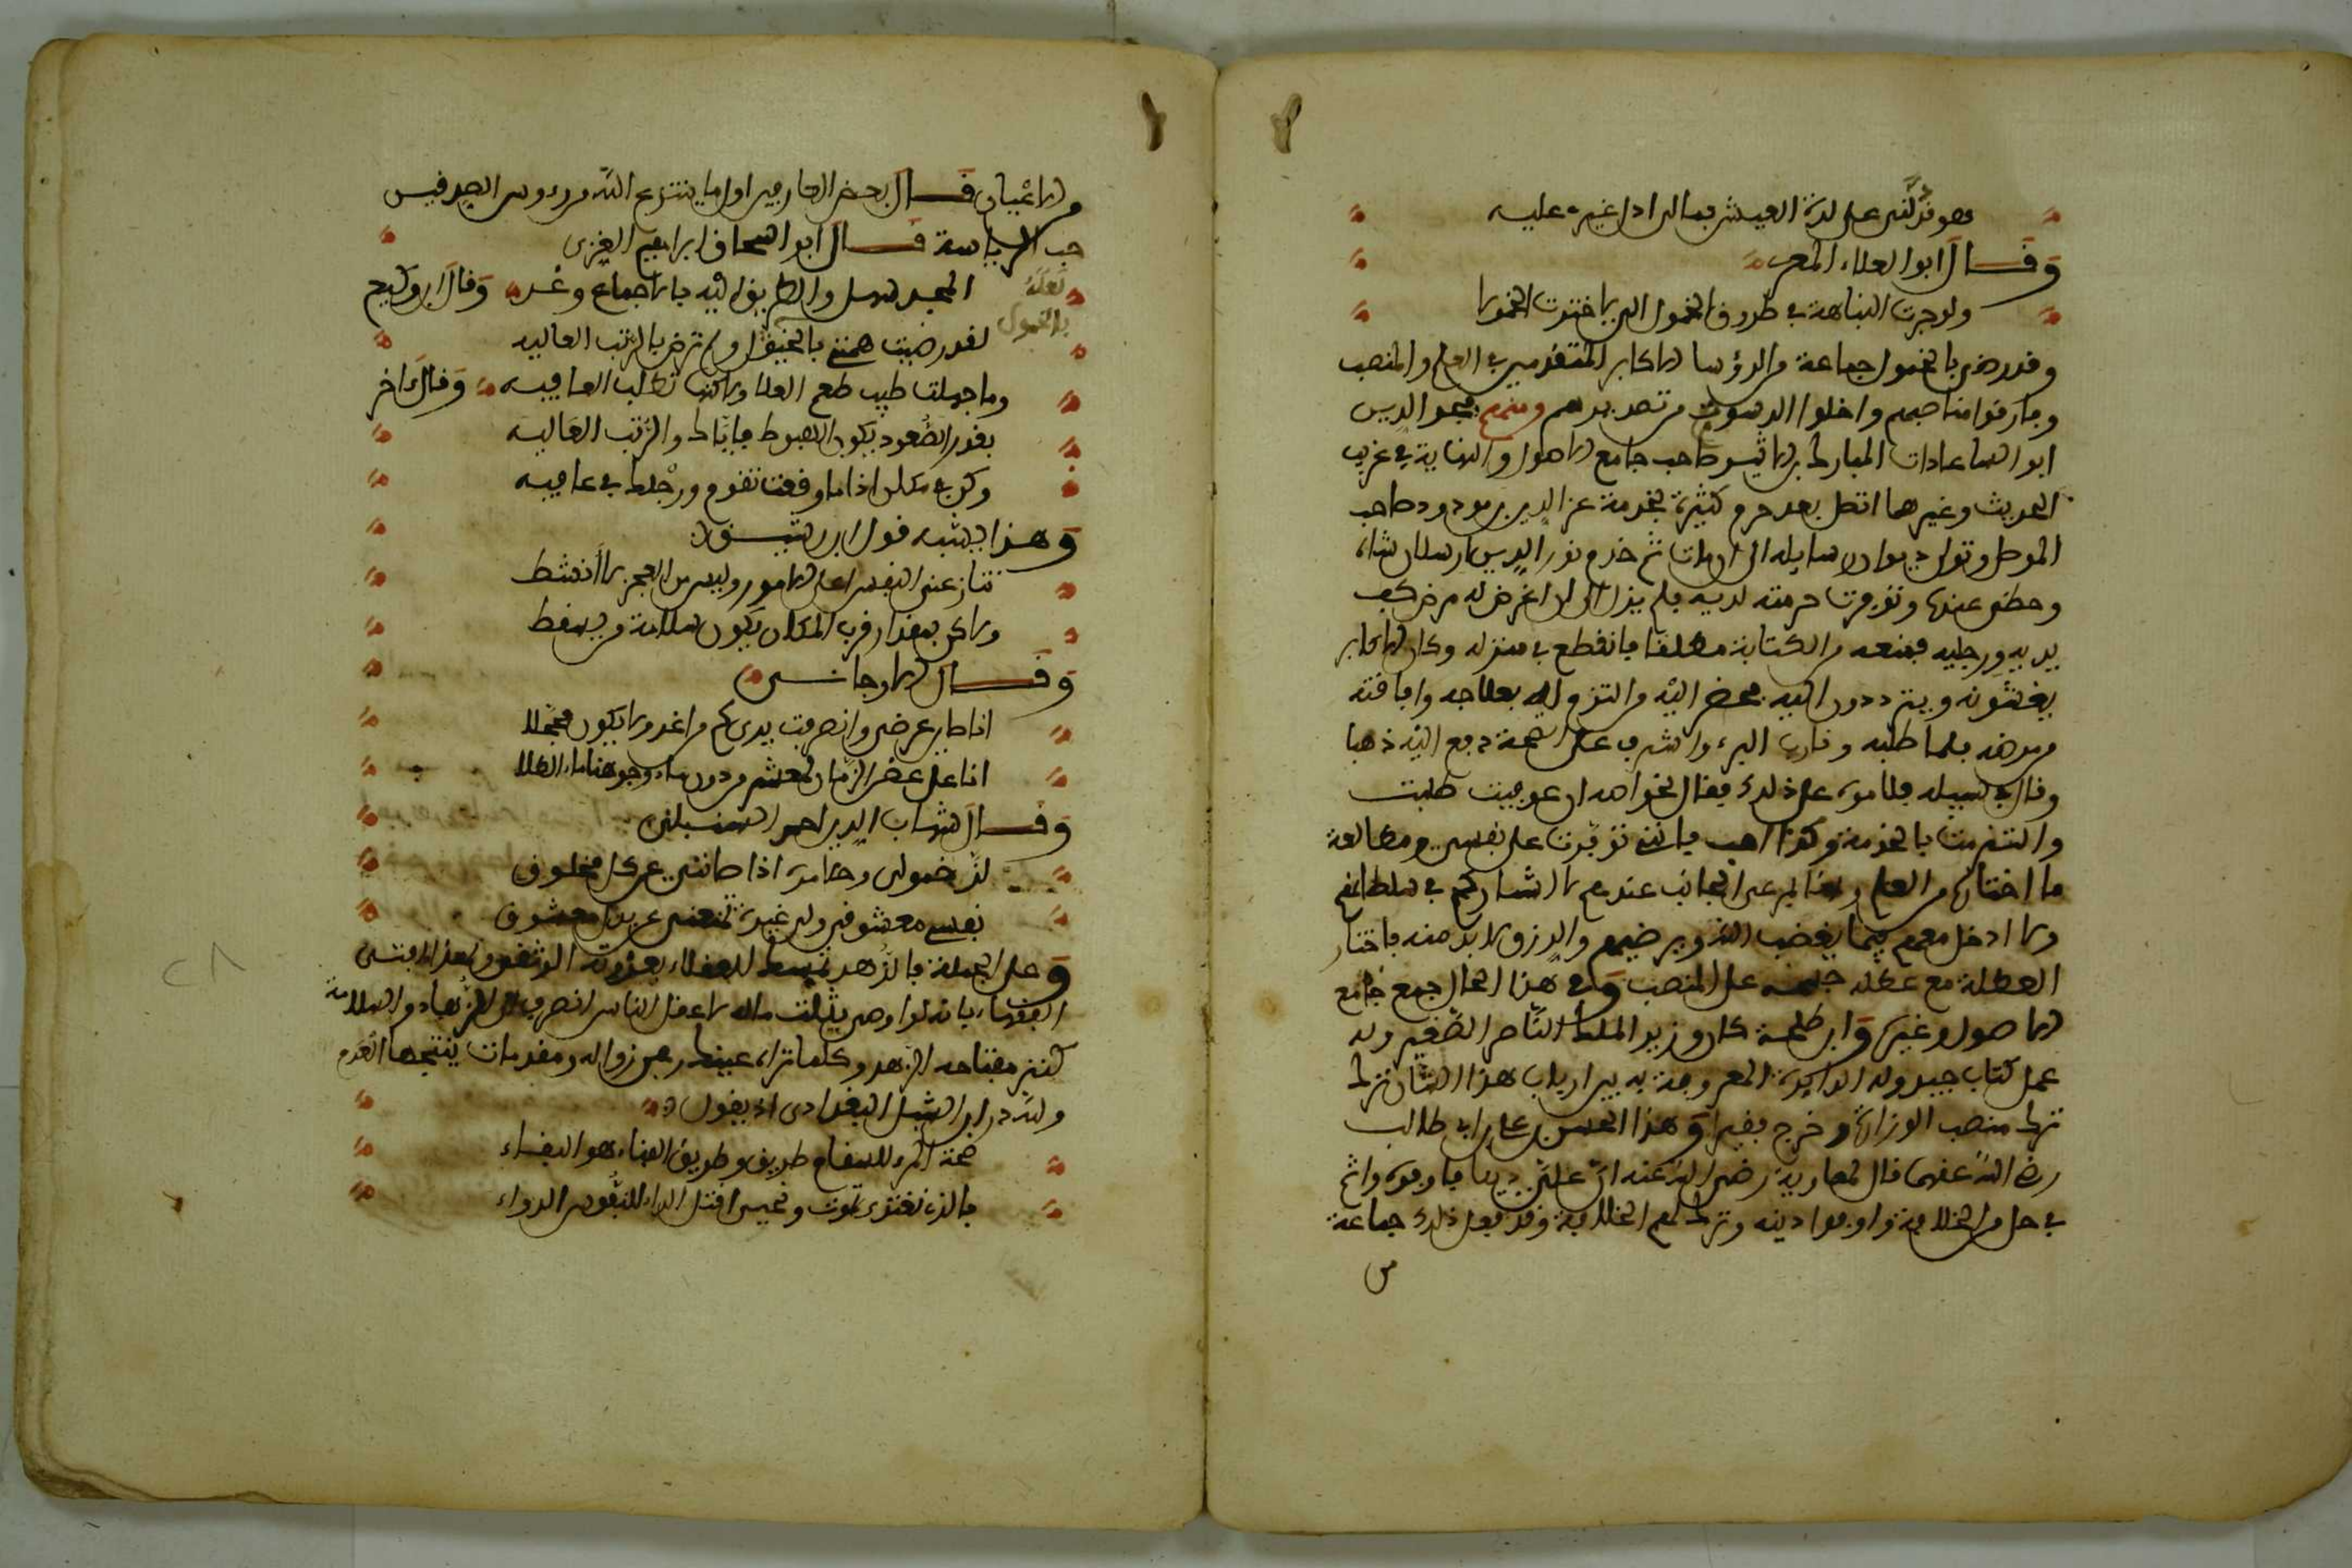 فهو يدلنى على لذة العيش فمالى ادل غيرى عليه
وقال ابو العلاء المعرى
ولو جرت النباهة في طريق الخمول الي لاخترت الخمولا
وقد رضى بالخمول جماعة من الرؤسا الاكابر المتقدمين في العلم والمنصب
وفارقوا مناصبهم واخلوا الدسوت من تصديرهم ومنهم مجد الدين
ابو السعادات المبارك بن الاثير صاحب جامع الاصول والنهاية في غريب
الحديث وغيرهما اتصل بعد حرم كثيرة بخدمة عز الدين بن مودود صاحب
الموصل وتولى ديوان رسايله الى ان مات ثم خدم نور الدين ارسلان شاه
وحظي عنده وتوفرت حرمته لديه فلم يزل الى ان عرض له مرض كف
يديه ورجليه فمنعه من الكتابة مطلقا فانقطع في منزله وكان الاكابر
يغشونه ويترددون اليه فحضر اليه من التزم له بعلاجه وافاقته
من مرضه فلما طلبه وقارب البرء واشرف على الصحة دفع اليه ذهبا
وقال في سبيله فلاموه على ذلك فقال لخواصه ان عوفيت طلبت
والتزمت بالخدمة وكذا احب فانني توفرت على نفسي ومطالعة
ما اختار من العلم وهنا يرعى الجانب عندهم لا اشاركهم في سلطانهم
ولا ادخل معهم فيما يغضب الله ويرضيهم والرزق لا بد منه فاختار
العطلة مع عطلة جسمه على المنصب وفي هذا الحال جمع جامع
الاصول وغيره وابن طلحة كان وزير الملك الناصر الصغير وله
عمل كتاب جيد وله الدايرة المعروفة به بين ارباب هذا الشان ترك
ترك منصب الوزارة وخرج فقيرا وهذا الحسن بن على بن ابي طالب
رضي الله عنهما قال لمعاوية رضي الله عنه ان علي دينا فاوفوه وانتم
في حل من الخلافة فاوفوا دينه وترك لهم الخلافة وقد فعل ذلك جماعة
من
من الاعيان قال بعض العارفين اول ما ينتزع الله من رءوس الصديقين
حب الرياسة قال ابو اسحاق ابراهيم الغزى
المجد سهل والطريق اليه بالاجماع وعر وقال ابن وكيع
لعله
بالخمول
لقد رضيت همتي بالخمول ولم ترض بالرتب العاليه
وما جهلت طيب طعم العلا ولاكنها تطلب العافيه وقال اخر
بقدر الصعود يكون الهبوط فاياك والرتب العاليه
وكن في مكان اذا ما وقعت تقوم ورجلك في عافيه
وهذا يشبه قول ابن رشيق
تنازعني النفس اعلى الامور وليس من العجز لا انشط
ولاكن بمقدار قرب المكان يكون سلامة من يسقط
وقال الارجاني
وقال شهاب الدين احمد السنبلي
لذ خمولى وحلا مره اذا صانني عن كل مخلوق
نفسي معشوقي ولي غيرة تمنعني عن بذل معشوق
وعلى الجملة فالزهد
الفقهاء بانه لو اوصى بثلث ماله لاعقل الناس انصرف الى الزهاد والسلامة
كنز مفتاحه الزهد وكلما تراه عينك رهين زواله ومقدمات ينتجها العدم
ولله در ابن الشبل البغدادى اذ يقول
صحة المرء للسقام طريق وطريق الفناء هو البقاء
بالذي نغتذى نموت ونحيى اقتل الداء للنفوس الدواء
٢٨